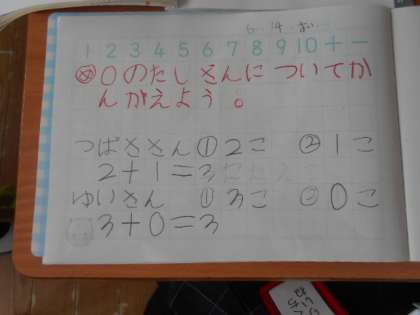 6.14.
1 2 3 4 5 6 7 8 9 10 + −
め 0のたしざんについてか
んがえよう。
つばささん ① 2こ ② 1こ
2+1=3
ゆいさん ① 3こ ② 0こ
3+0=3